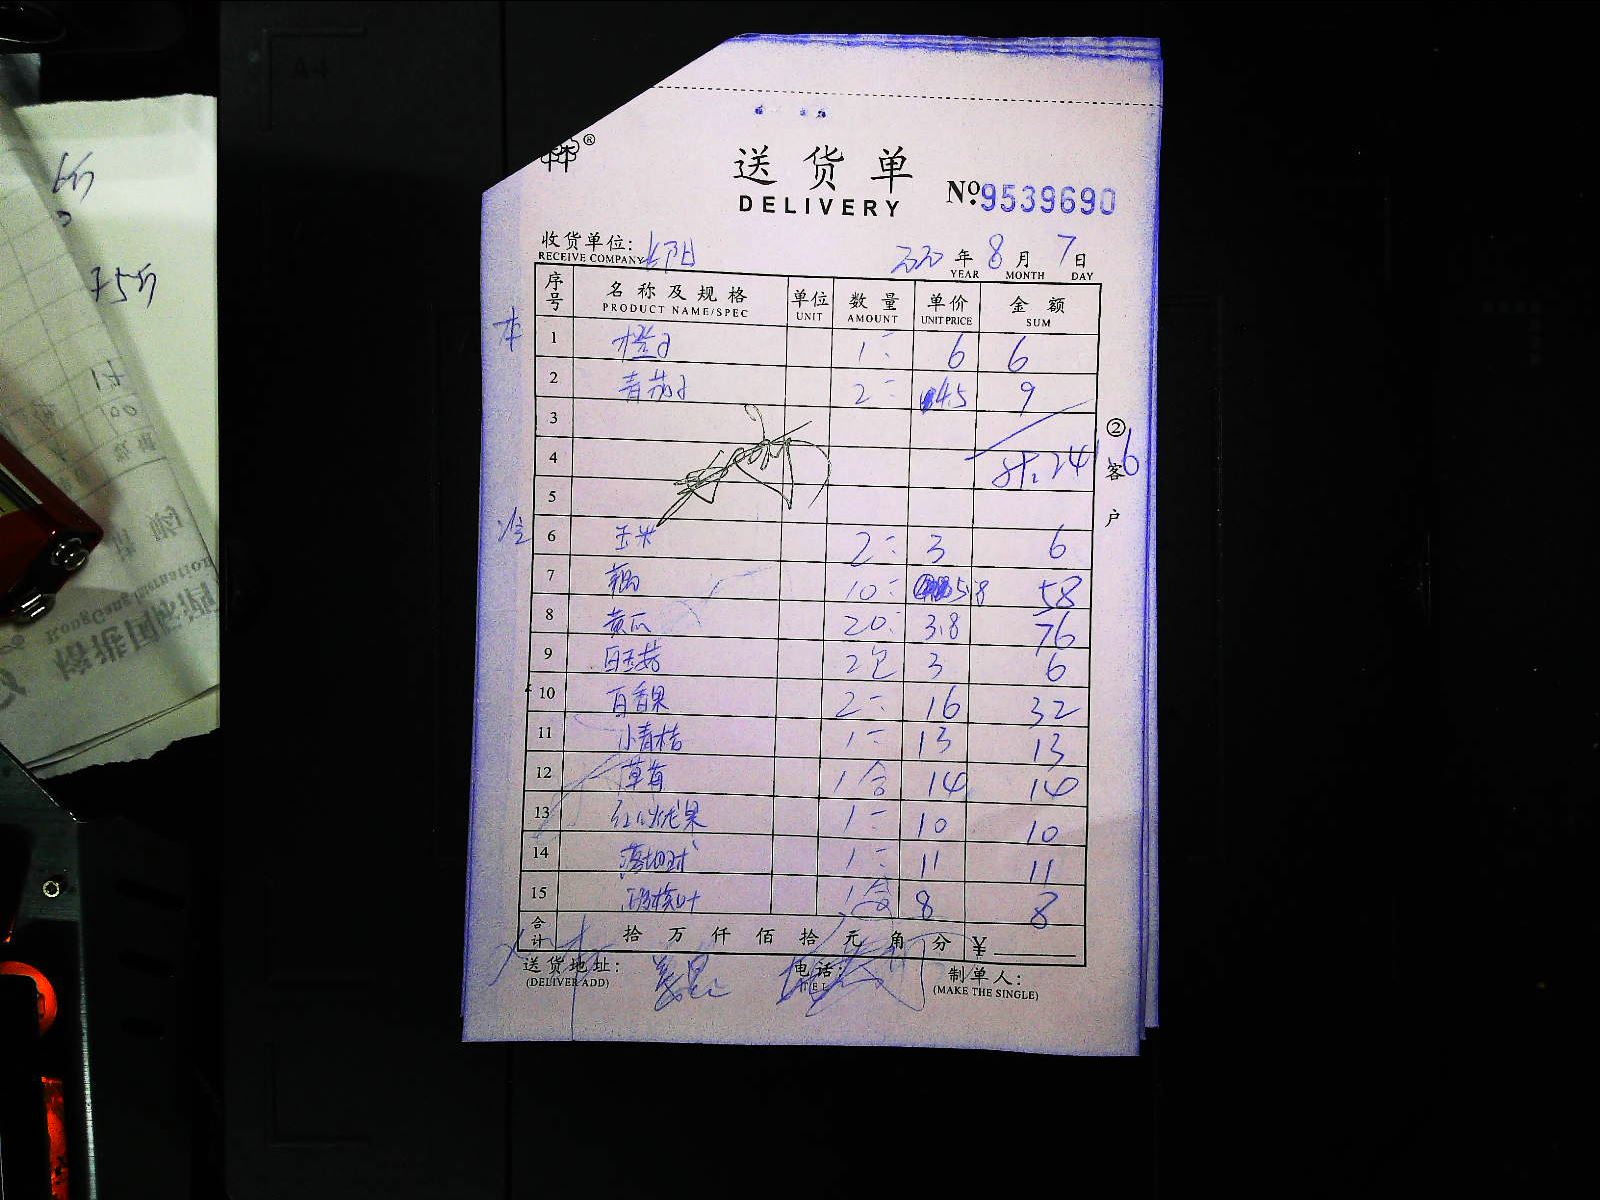 送货单
DELIVERY
No. 9539690
收货单位:
RECEIVE COMPANY
年 8 月 7 日
YEAR MONTH DAY
序号 名称及规格 单位 数量 单价 金额
PRODUCT NAME/SPEC UNIT AMOUNT UNIT PRICE SUM
本
1 橙子 1 6 6
2 青茄子 2 4.5 9
3
4
5
② 客户
6 玉米 2 3 6
7 藕 10 5.8 58
8 黄瓜 20 3.8 76
9 白玉菇 2包 3 6
10 百香果 2 16 32
11 小青桔 1 13 13
12 草莓 1合 14 14
13 红火龙果 1 10 10
14 1 11 11
15 1合 8 8
合计 拾 万 仟 佰 拾 元 角 分 ¥
送货地址: 电话: 制单人:
(DELIVER ADD) TEL (MAKE THE SINGLE)